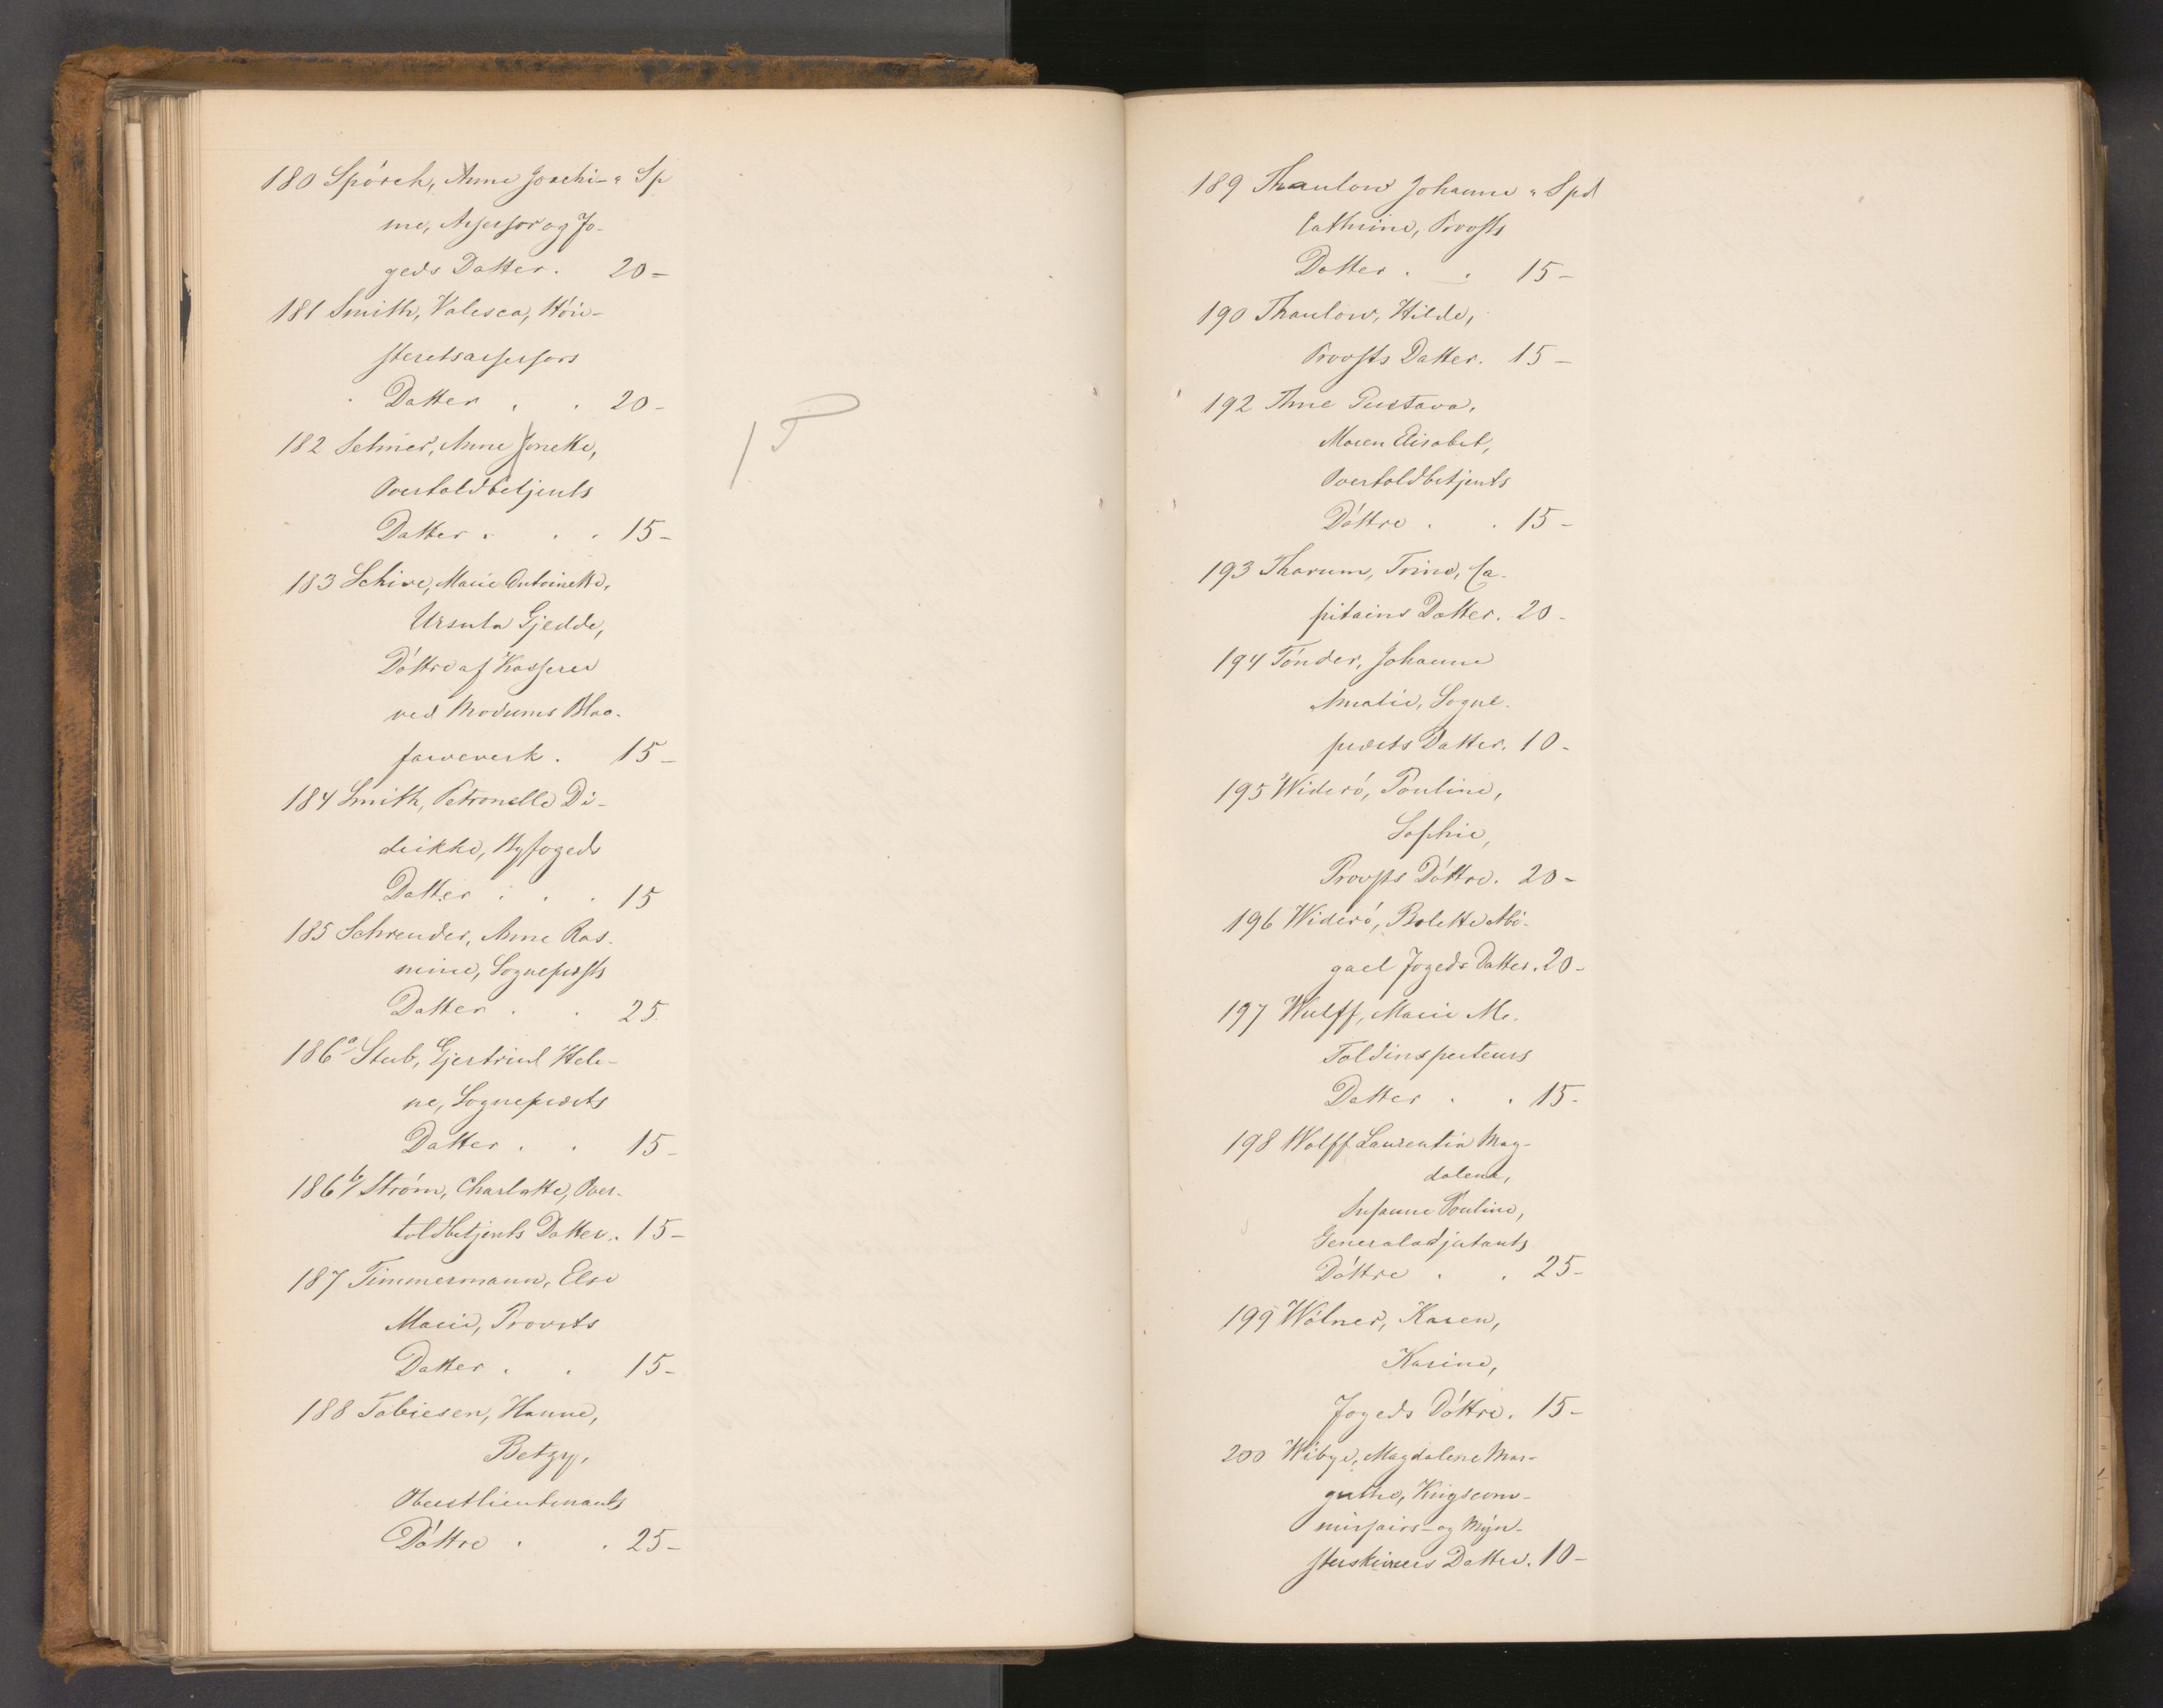 180 Spörck, Anne Joachi- " Sp
me, Assessor og Fo-
geds Datter. 20 -
181 Smith, Valesca, Höie-
steretsassessors
Datter . . 20 -
182 Selmer, Anne Jonette,
Overtoldbetjents
Datter . . . 15 -
183 Schive, Marie Antoinette,
Ursula Gjedde,
Döttre af Kasserer
ved Modums Blaa-
farveverk . 15 -
184 Smith, Petronelle Di-
derikke, Byfogeds
Datter . . . 15
185 Schreuder, Anne Ras-
mine, Sogneprests
Datter . . 25
186 a/ Stub, Gjertrud Hele-
ne, Sogneprests
Datter . . 15 -
186 b/ Ström, Charlotte, Over-
toldbetjents Datter . 15 -
187 Timmermann, Else
Marie, Provsts
Datter . . 15 -
188 Tobiesen, Hanne,
Betzy,
Oberstlieutenants
Döttre . . 25 -
1 T
189 Thaulow Johanne " Spd
Cathrine, Provsts
Datter . . 15 -
190 Thaulow, Hilde,
Provsts Datter. 15 -
192 Thue Gustava,
Maren Elisabet,
Overtoldbetjents
Döttre . . 15 -
193 Tharum, Trine, Ca-
pitains Datter. 20 -
194 Tönder, Johanne
Amalie, Sogne-
prests Datter. 10 -
195 Wideró, Pauline,
Sophie,
Provsts Döttre. 20 -
196 Wideró, Bolette Abi-
gael Fogeds Datter. 20 -
197 Wulff, Marie M.
Toldinspecteurs
Datter . . 15 -
198 Wolff Laurentia Mag-
dalena,
Susanne Pauline,
Generaladjutants
Döttre . . 25 -
199 Wölner, Karen,
Karine,
Fogeds Döttre. 15 -
200 Wibye, Magdalene Mar-
grethe, Krigscom-
missairs- og Mön-
sterskrivers Datter. 10 -